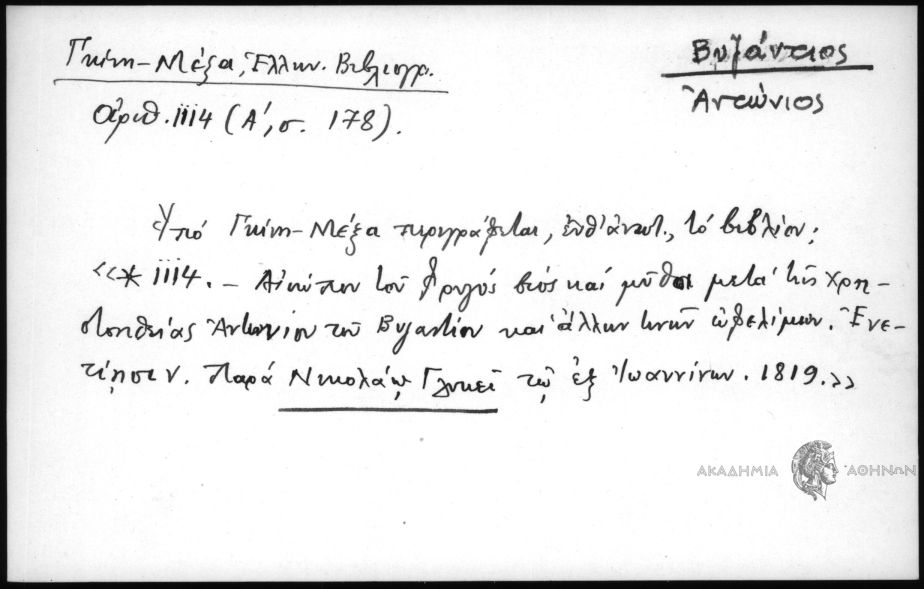 Γκίνη-Μέξα, Ἑλλην. Βιβλιογρ.
Βυζάντιος
Ἀντώνιος
ἀριθ. 1114 (Α', σ. 178).
Ὑπό Γκίνη-Μέξα περιγράφεται, ἐνθ' ἀνωτ., τό βιβλίον:
«* 1114. – Αἰσώπου τοῦ Φρυγός βίος καί μῦθοι μετά τῆς Χρη-
στοηθείας Ἀντωνίου τοῦ Βυζαντίου καί ἄλλων τινῶν ὠφελίμων. Ἐνε-
τίησιν. Παρά Νικολάῳ Γλυκεῖ τῷ ἐξ Ἰωαννίνων. 1819.»
ΑΚΑΔΗΜΙΑ ΑΘΗΝΩΝ